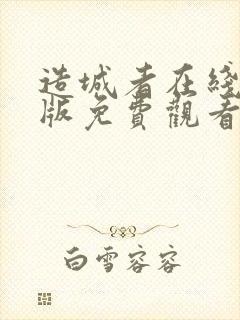 造城者在綫
版免費觀看
白雪容容